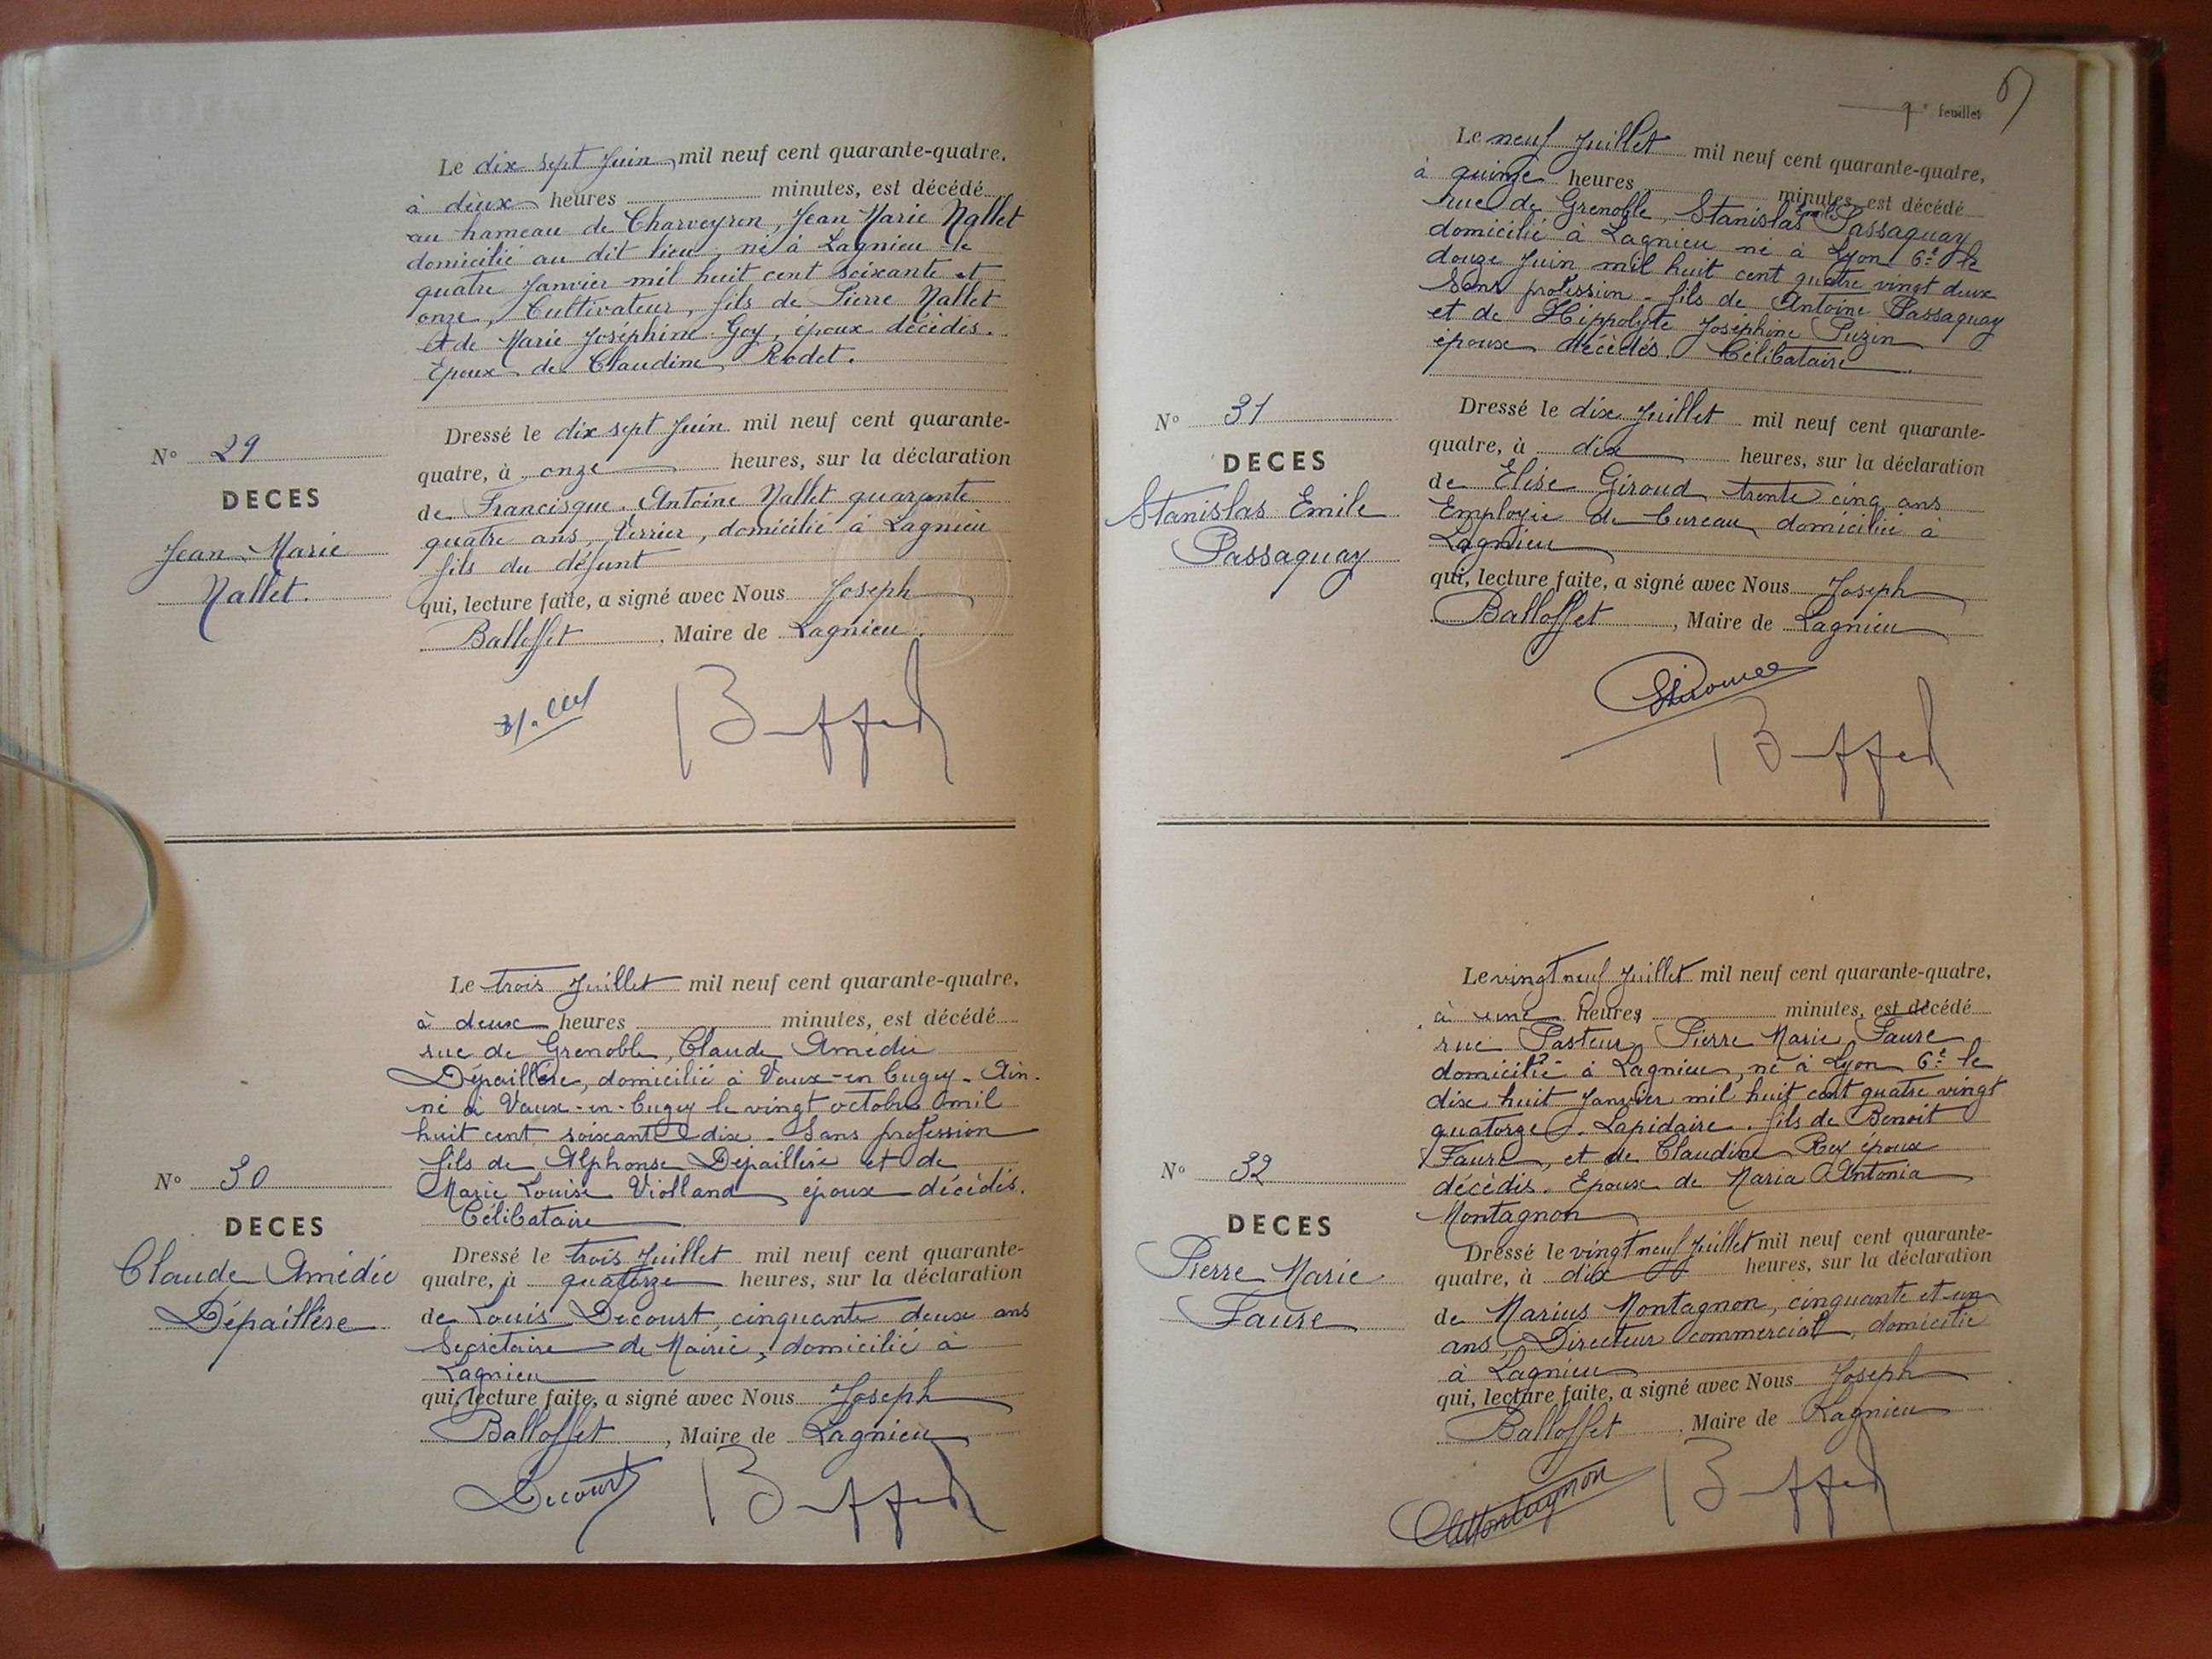 Le dix sept Juin mil neuf cent quarante-quatre,
à deux heures minutes, est décédé
au hameau de Charveyron, Jean Marie Nallet
domicilié au dit lieu, né à Lagnieu le
quatre Janvier mil huit cent soixante et
onze, Cultivateur, fils de Pierre Nallet
et de Marie Joséphine Goy, époux décédés.
Epoux de Claudine Rodet.
N° 29
DECES
Jean Marie
Nallet.
Dressé le dix sept Juin mil neuf cent quarante-
quatre, à onze heures, sur la déclaration
de Francisque Antoine Nallet quarante
quatre ans, Verrier, domicilié à Lagnieu
fils du défunt
qui, lecture faite, a signé avec Nous Joseph
Balloffet, Maire de Lagnieu.
Le trois Juillet mil neuf cent quarante-quatre,
à deux heures minutes, est décédé
rue de Grenoble, Claude Amédée
Dépaillère, domicilié à Vaux-en Bugey - Ain.
né à Vaux-en-Bugey le vingt octobre mil
huit cent soixante dix. - Sans profession
fils de Alphonse Dépaillère et de
Marie Louise Violland époux décédés.
Célibataire
N° 30
DECES
Claude Amédée
Dépaillère
Dressé le trois Juillet mil neuf cent quarante-
quatre, à quatorze heures, sur la déclaration
de Louis Decourt, cinquante deux ans
Secrétaire de Mairie, domicilié à
Lagnieu
qui, lecture faite, a signé avec Nous Joseph
Balloffet, Maire de Lagnieu
Decourt
9e feuillet
Le neuf Juillet mil neuf cent quarante-quatre,
à quinze heures minutes, est décédé
rue de Grenoble, Stanislas Emile Passaquay
domicilié à Lagnieu né à Lyon 6e le
douze Juin mil huit cent quatre vingt deux
Sans profession - fils de Antoine Passaquay
et de Hippolyte Joséphine Puzin
époux décédés. Célibataire.
N° 31
DECES
Stanislas Emile
Passaquay
Dressé le dix Juillet mil neuf cent quarante-
quatre, à dix heures, sur la déclaration
de Elise Giroud trente cinq ans
Employée de bureau, domiciliée à
Lagnieu
qui, lecture faite, a signé avec Nous Joseph
Balloffet, Maire de Lagnieu
Le vingt neuf Juillet mil neuf cent quarante-quatre,
à une heures minutes, est décédé
rue Pasteur, Pierre Marie Faure
domicilié à Lagnieu, né à Lyon 6e le
dix huit Janvier mil huit cent quatre vingt
quatorze. Lapidaire. fils de Benoit
Faure, et de Claudine Rey époux
décédés. Epoux de Maria Antonia
Montagnon
N° 32
DECES
Pierre Marie
Faure
Dressé le vingt neuf Juillet mil neuf cent quarante-
quatre, à dix heures, sur la déclaration
de Marius Montagnon, cinquante et un
ans, Directeur commercial, domicilié
à Lagnieu
qui, lecture faite, a signé avec Nous Joseph
Balloffet, Maire de Lagnieu
Montagnon